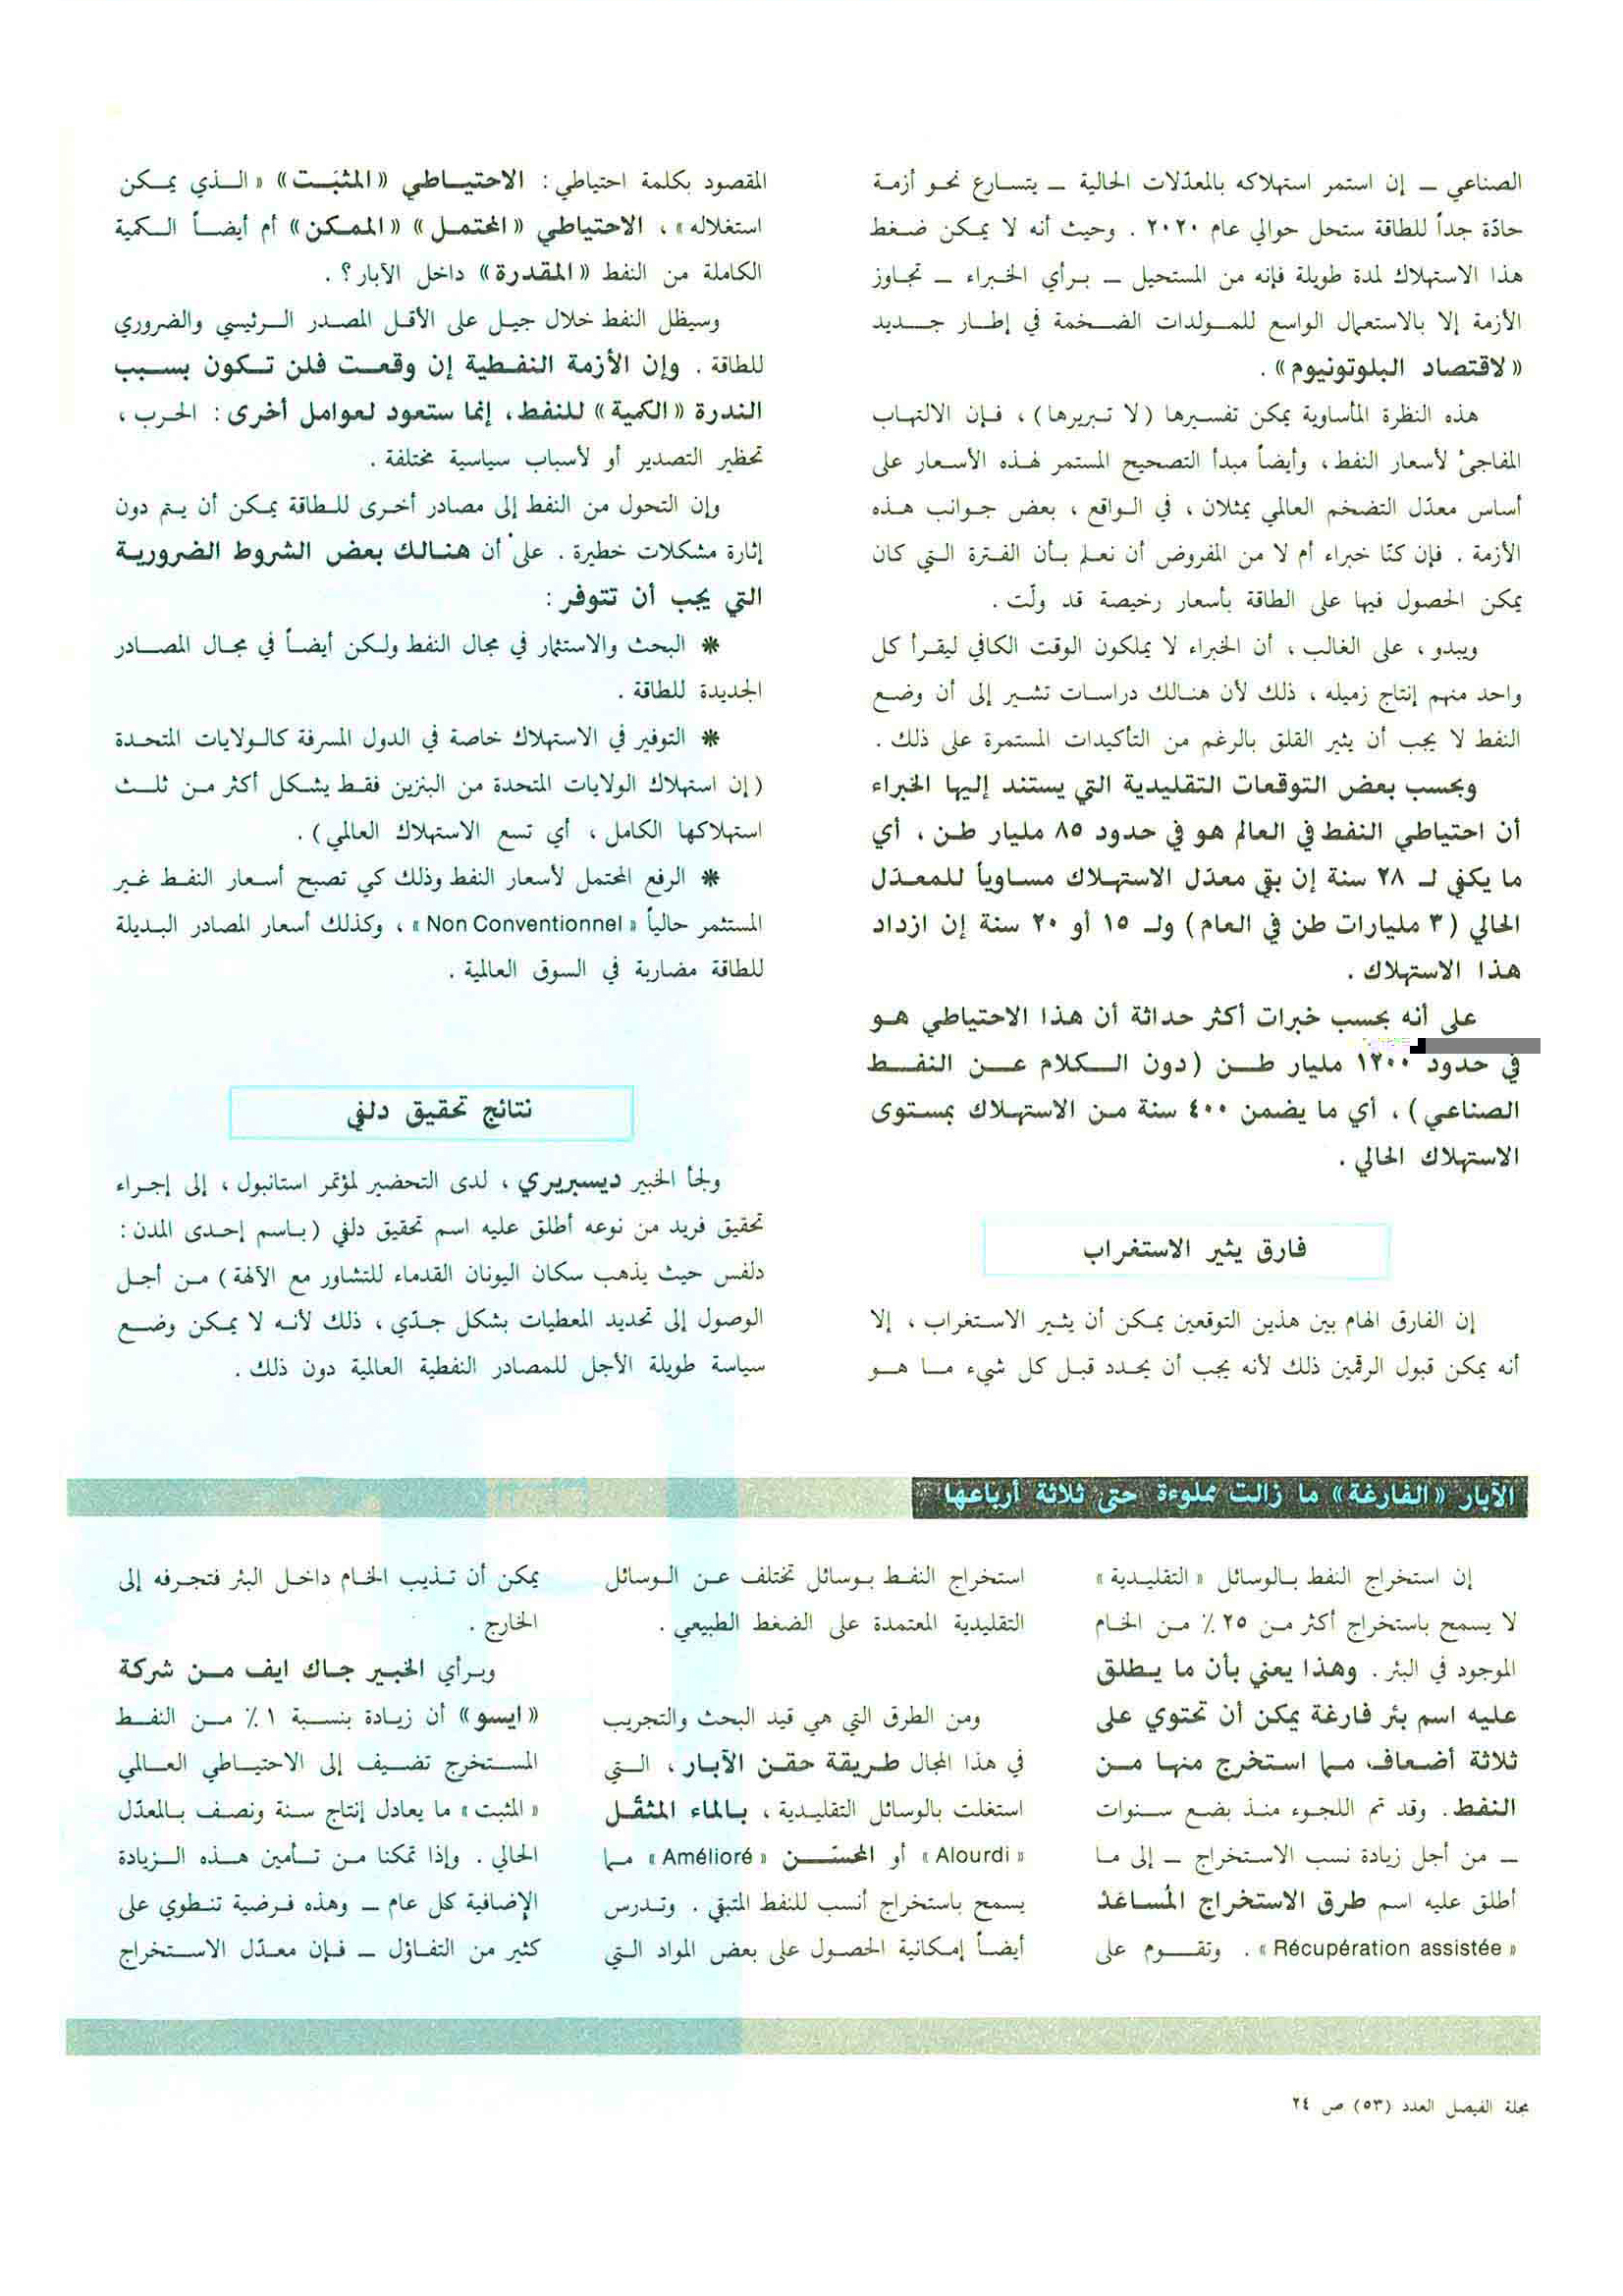 الصناعي ــ إن استمر استهلاكه بالمعدّلات الحالية ــ يتسارع نحو أزمة
حادّة جداً للطاقة ستحل حوالي عام ٢٠٢٠ . وحيث أنه لا يمكن ضغط
هذا الاستهلاك لمدة طويلة فإنه من المستحيل ــ برأي الخبراء ــ تجاوز
الأزمة إلا بالاستعمال الواسع للمولدات الضخمة في إطار جديد
«لاقتصاد البلوتونيوم» .
هذه النظرة المأساوية يمكن تفسيرها (لا تبريرها) ، فإن الالتهاب
المفاجئ لأسعار النفط ، وأيضاً مبدأ التصحيح المستمر لهذه الأسعار على
أساس معدّل التضخم العالمي يمثلان ، في الواقع ، بعض جوانب هذه
الأزمة . فإن كنّا خبراء أم لا من المفروض أن نعلم بأن الفترة التي كان
يمكن الحصول فيها على الطاقة بأسعار رخيصة قد ولّت .
ويبدو ، على الغالب ، أن الخبراء لا يملكون الوقت الكافي ليقرأ كل
واحد منهم إنتاج زميله ، ذلك لأن هنالك دراسات تشير إلى أن وضع
النفط لا يجب أن يثير القلق بالرغم من التأكيدات المستمرة على ذلك .
وبحسب بعض التوقعات التقليدية التي يستند إليها الخبراء
أن احتياطي النفط في العالم هو في حدود ٨٥ مليار طن ، أي
ما يكفي لـ ٢٨ سنة إن بقي معدّل الاستهلاك مساوياً للمعدّل
الحالي (٣ مليارات طن في العام) ولـ ١٥ أو ٢٠ سنة إن ازداد
هذا الاستهلاك .
على أنه بحسب خبرات أكثر حداثة أن هذا الاحتياطي هو
في حدود ١٢٠٠ مليار طن (دون الكلام عن النفط
الصناعي) ، أي ما يضمن ٤٠٠ سنة من الاستهلاك بمستوى
الاستهلاك الحالي .
فارق يثير الاستغراب
إن الفارق الهام بين هذين التوقعين يمكن أن يثير الاستغراب ، إلا
أنه يمكن قبول الرقمين ذلك لأنه يجب أن يحدد قبل كل شيء ما هو
المقصود بكلمة احتياطي : الاحتياطي «المثبَت» «الذي يمكن
استغلاله» ، الاحتياطي «المحتمل» «الممكن» أم أيضاً الكمية
الكاملة من النفط «المقدرة» داخل الآبار؟ .
وسيظل النفط خلال جيل على الأقل المصدر الرئيسي والضروري
للطاقة . وإن الأزمة النفطية إن وقعت فلن تكون بسبب
الندرة «الكمية» للنفط ، إنما ستعود لعوامل أخرى : الحرب ،
تحظير التصدير أو لأسباب سياسية مختلفة .
وإن التحول من النفط إلى مصادر أخرى للطاقة يمكن أن يتم دون
إثارة مشكلات خطيرة . على أن هنالك بعض الشروط الضرورية
التي يجب أن تتوفر :
* البحث والاستثمار في مجال النفط ولكن أيضاً في مجال المصادر
الجديدة للطاقة .
* التوفير في الاستهلاك خاصة في الدول المسرفة كالولايات المتحدة
(إن استهلاك الولايات المتحدة من البنزين فقط يشكل أكثر من ثلث
استهلاكها الكامل ، أي تسع الاستهلاك العالمي) .
* الرفع المحتمل لأسعار النفط وذلك كي تصبح أسعار النفط غير
المستثمر حالياً «Non Conventionnel» ، وكذلك أسعار المصادر البديلة
للطاقة مضاربة في السوق العالمية .
نتائج تحقيق دلفي
ولجأ الخبير ديسبريري ، لدى التحضير لمؤتمر استانبول ، إلى إجراء
تحقيق فريد من نوعه أطلق عليه اسم تحقيق دلفي (باسم إحدى المدن :
دلفس حيث يذهب سكان اليونان القدماء للتشاور مع الآلهة) من أجل
الوصول إلى تحديد المعطيات بشكل جدّي ، ذلك لأنه لا يمكن وضع
سياسة طويلة الأجل للمصادر النفطية العالمية دون ذلك .
الآبار «الفارغة» ما زالت مملوءة حتى ثلاثة أرباعها
إن استخراج النفط بالوسائل «التقليدية»
لا يسمح باستخراج أكثر من ٢٥ ٪ من الخام
الموجود في البئر . وهذا يعني بأن ما يطلق
عليه اسم بئر فارغة يمكن أن تحتوي على
ثلاثة أضعاف مما استخرج منها من
النفط . وقد تم اللجوء منذ بضع سنوات
ــ من أجل زيادة نسب الاستخراج ــ إلى ما
أطلق عليه اسم طرق الاستخراج المُساعَد
«Récupération assistée» . وتقوم على
استخراج النفط بوسائل تختلف عن الوسائل
التقليدية المعتمدة على الضغط الطبيعي .
ومن الطرق التي هي قيد البحث والتجريب
في هذا المجال طريقة حقن الآبار ، التي
استغلت بالوسائل التقليدية ، بالماء المثقّل
«Alourdi» أو المحسّن «Amélioré» مما
يسمح باستخراج أنسب للنفط المتبقي . وتدرس
أيضاً إمكانية الحصول على بعض المواد التي
يمكن أن تذيب الخام داخل البئر فتجرفه إلى
الخارج .
وبرأي الخبير جاك ايف من شركة
«ايسو» أن زيادة بنسبة ١٪ من النفط
المستخرج تضيف إلى الاحتياطي العالمي
«المثبت» ما يعادل إنتاج سنة ونصف بالمعدّل
الحالي . وإذا تمكنا من تأمين هذه الزيادة
الإضافية كل عام ــ وهذه فرضية تنطوي على
كثير من التفاؤل ــ فإن معدّل الاستخراج
مجلة الفيصل العدد (٥٣) ص ٢٤